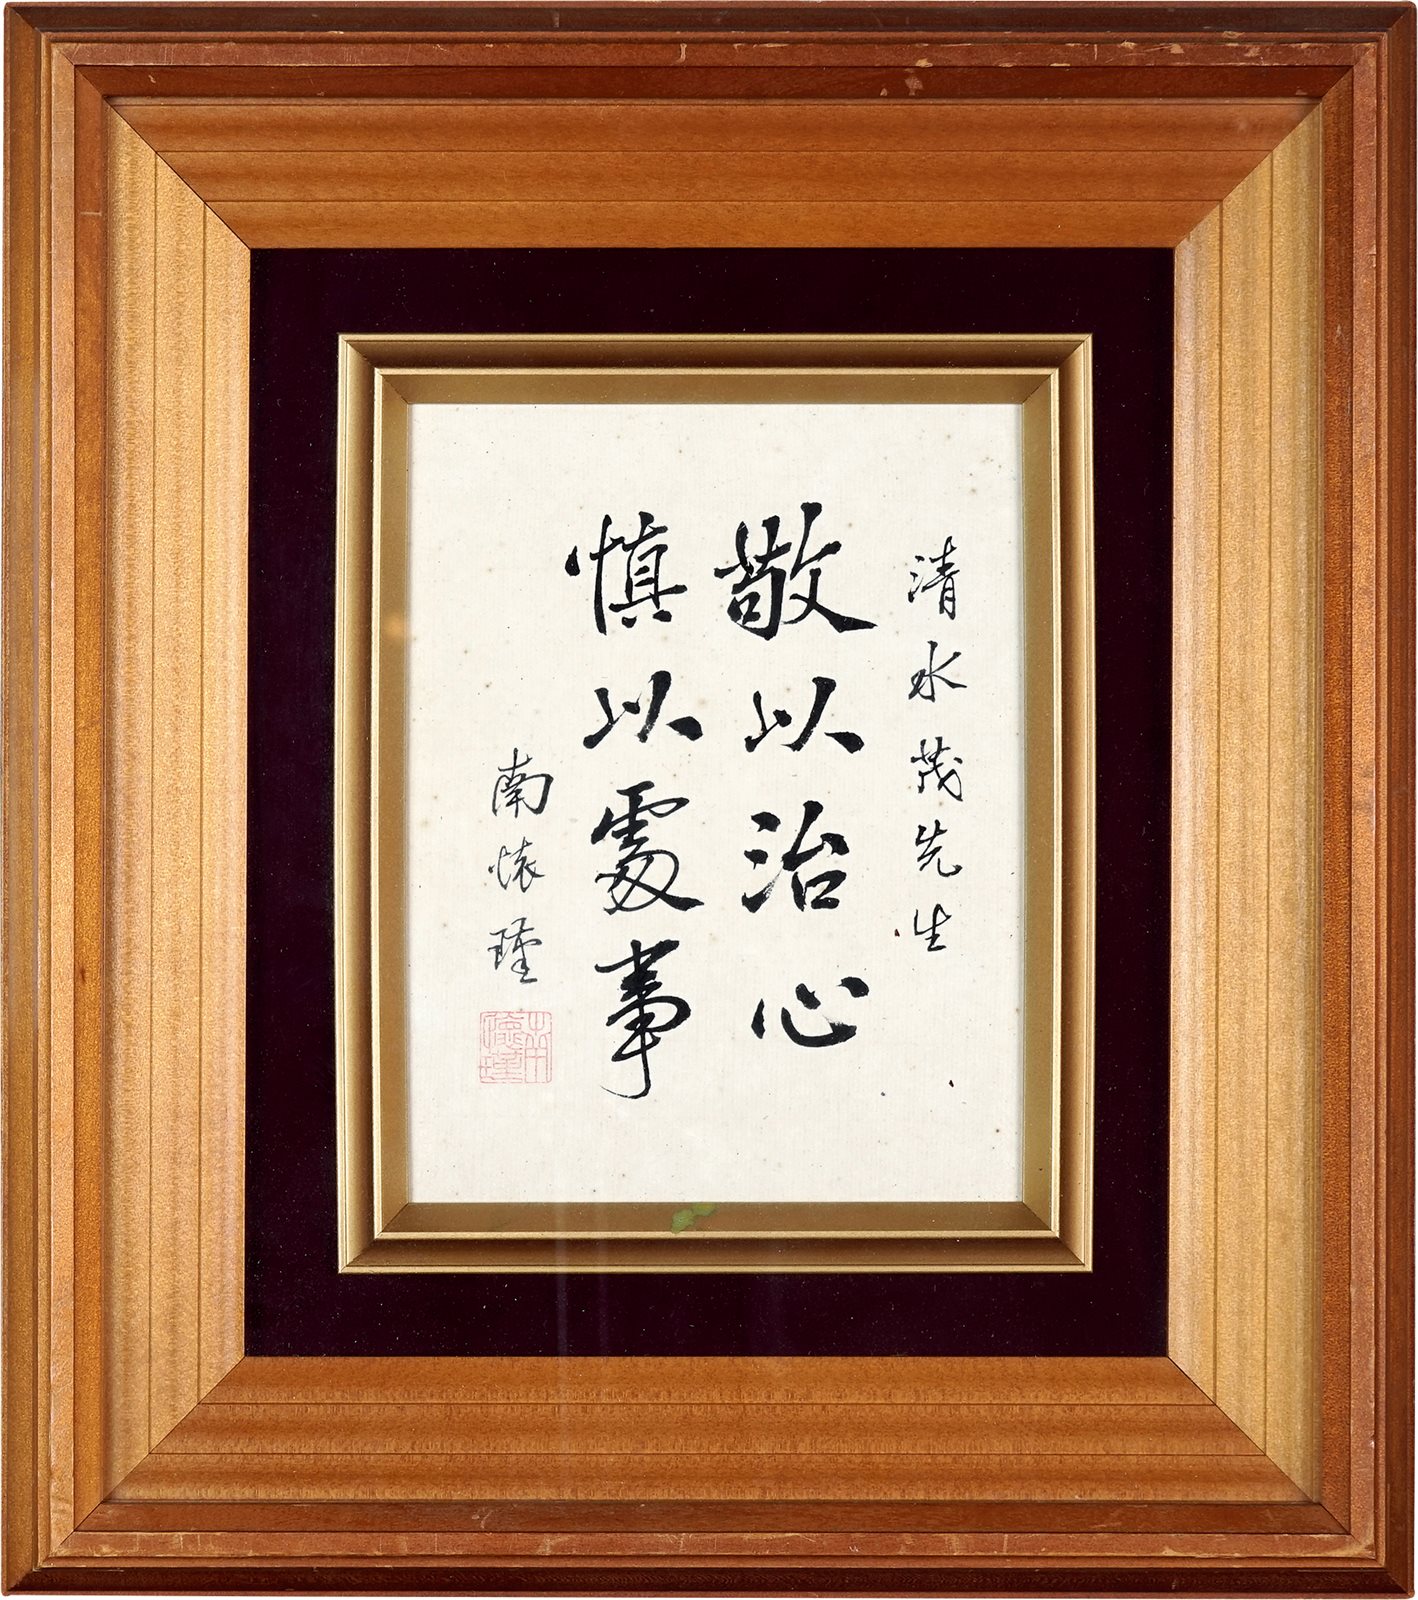 清水茂先生
敬以治心
慎以處事
南懷瑾
南懷瑾